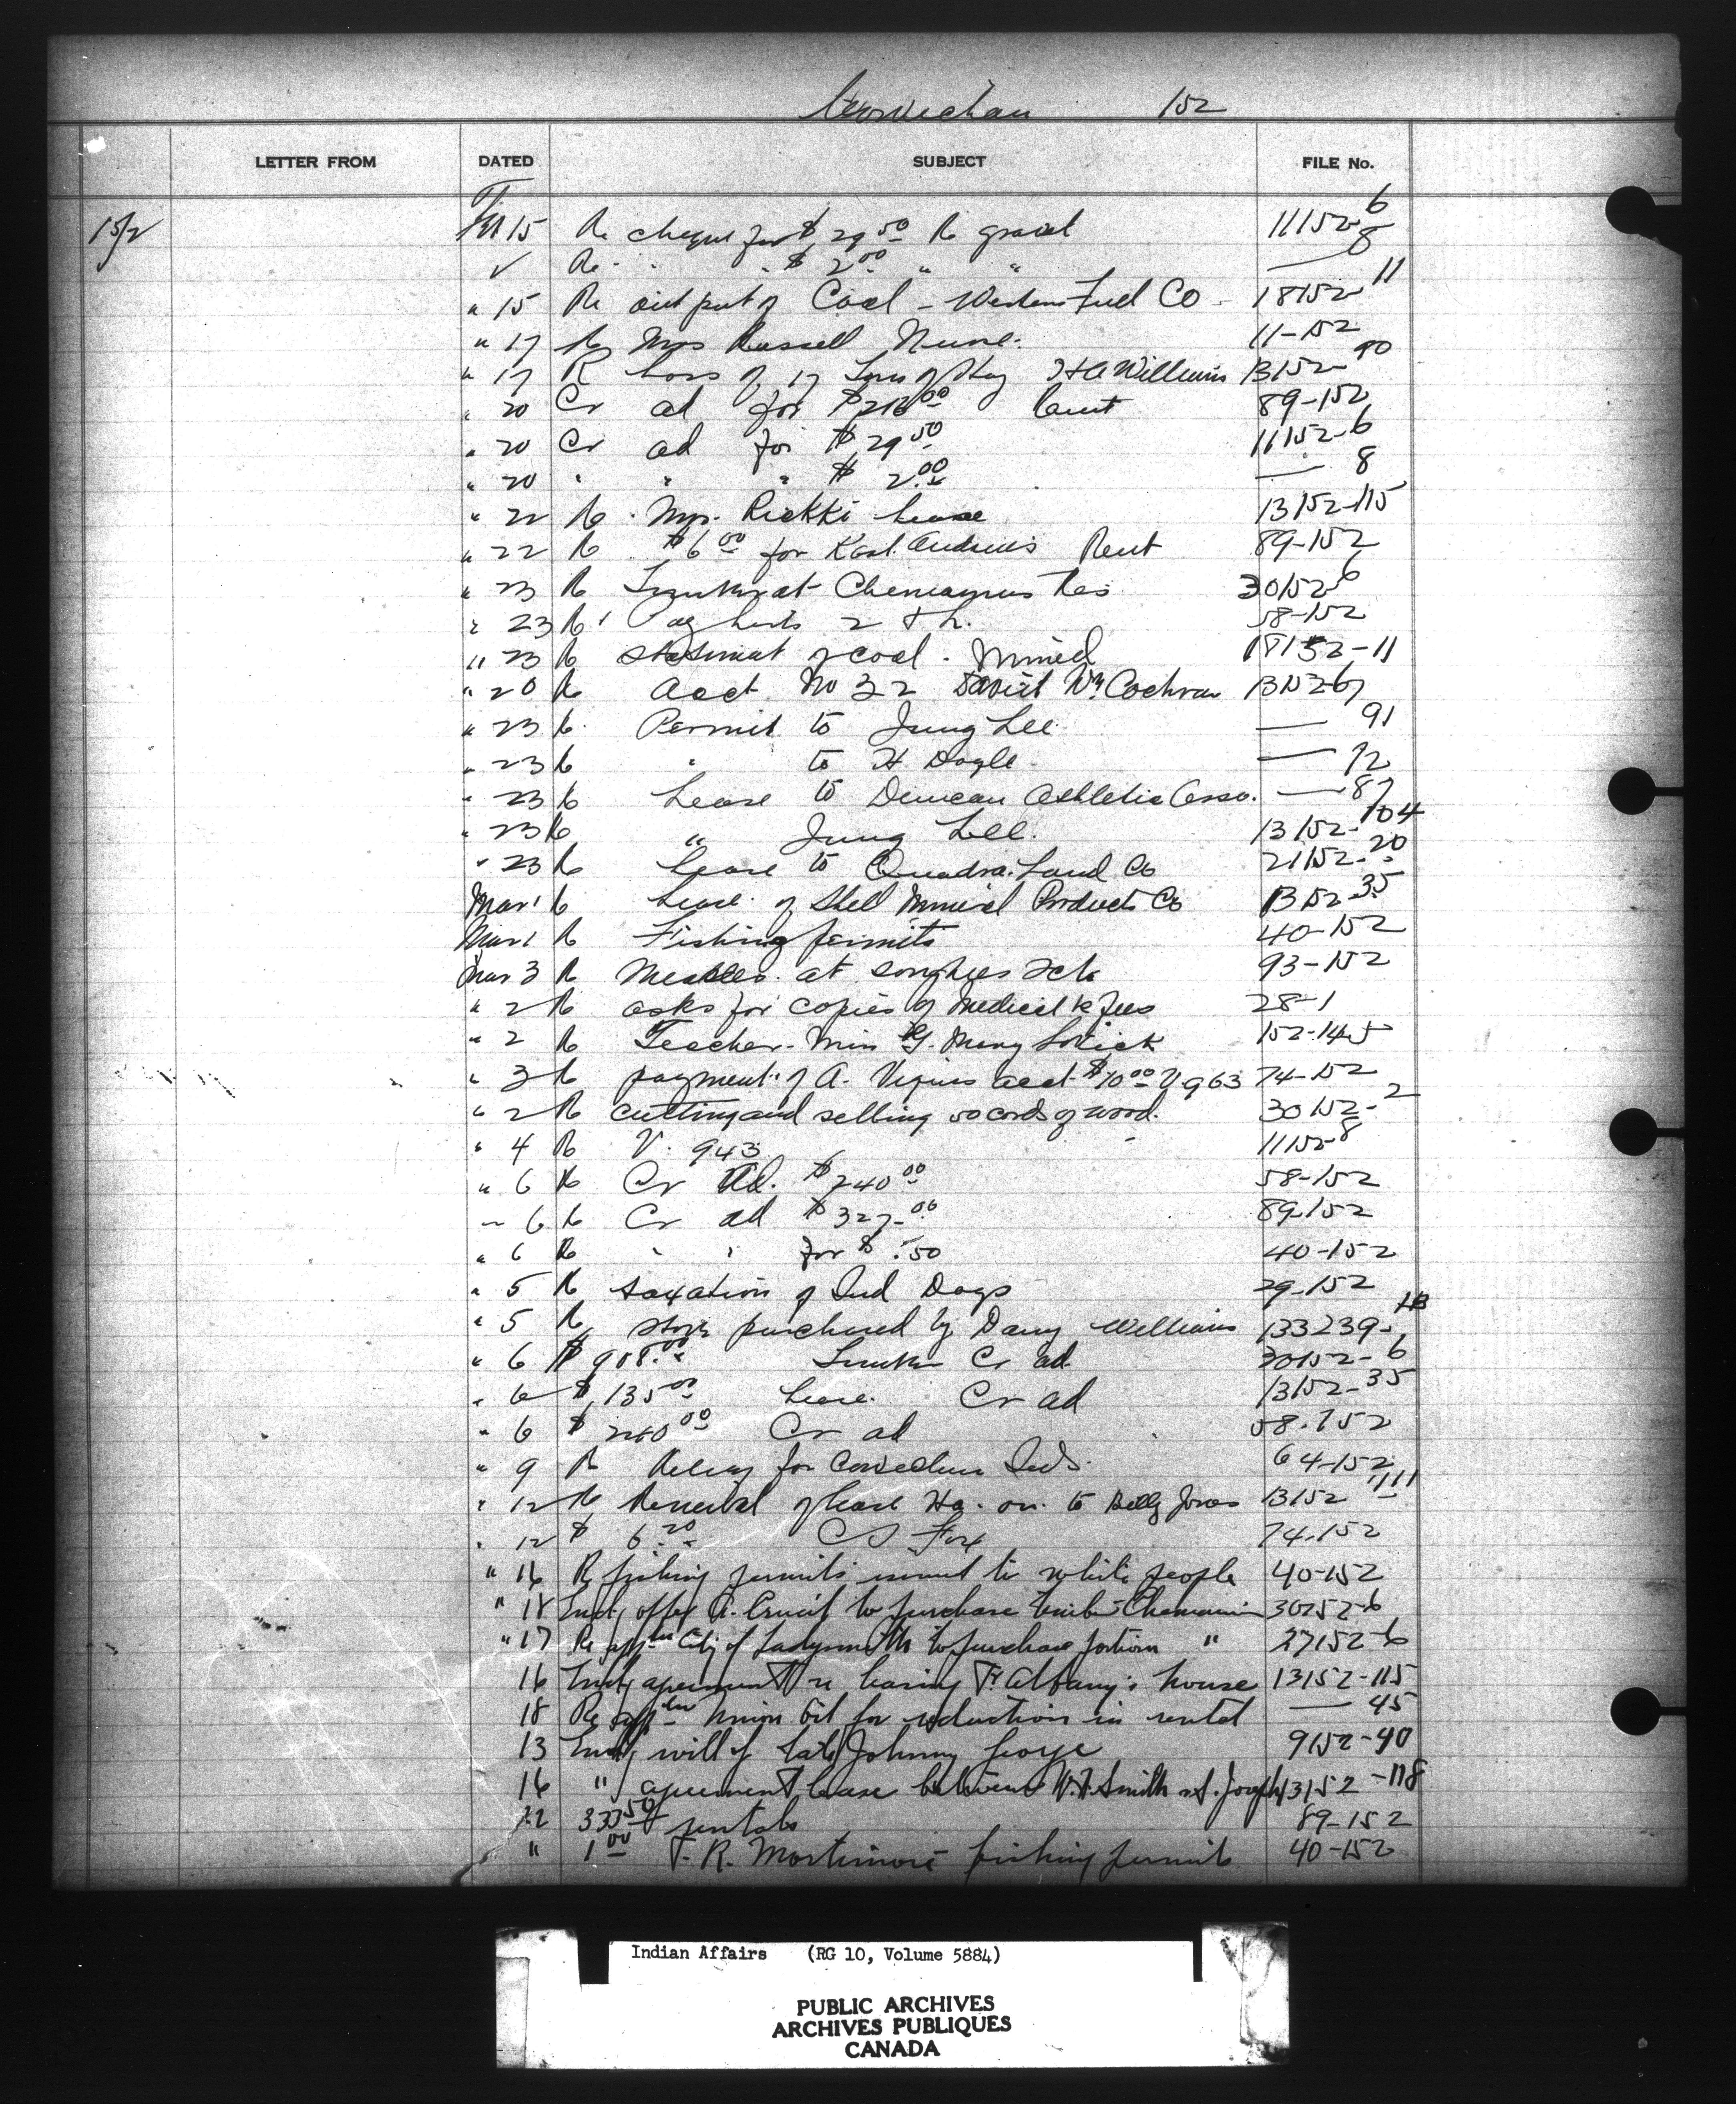 Cowichan 152
LETTER FROM DATED SUBJECT FILE No.
152 15 Re cheque for $29.50 Re gravel 11152-6
Re " " $2.00 " " — 8
" 15 Re output of Coal - Western Fuel Co 18152-11
" 17 Re Mrs Russell Nurse. 11-152
" 17 R loss of 17 Tons of Hay H A Williams 13152-90
" 20 Cr ad for 89-152
" 20 Cr ad for $29.50 11152-6
" 20 " " " $2.00 — 8
" 22 Re Mrs. Rickki lease 13152-115
" 22 R $6.00 for Rent 89-152
" 23 R Chemainus Res 30152-6
" 23 R 58-152
" 23 R statement of coal. Mined 18152-11
" 20 R Acct No 32 David Wm Cochran
" 23 R. Permit to Jung Lee — 91
" 23 R " to H. Doyle.
" 23 R Lease to Duncan Athletic Asso. — 87
" 23 R " Jung Lee. 13152-104
" 23 R Lease to Quadra Land Co 21152-20
Mar 1 R Lease of Shell Mineral Products Co 13152-35
Mar 1 R Fishing permits 40-152
Mar 3 R Measles at Songhees Sch 93-152
" 2 R asks for copies of Medical fees 28-1
" 2 R Teacher - Miss Mary 152-14-5
" 3 R payment of A. acct $10.00 V 963 74-152
" 2 R cutting and selling 50 cords of wood. 30152-2
" 4 R V. 943 11152-8
" 6 R Cr Ad. $240.00 58-152
" 6 R Cr ad $327.00 89-152
" 6 R " " for $.50 40-152
" 5 R taxation of Ind Dogs 29-152
" 5 R purchased by Danny Williams
" 6 $908.00 Timber Cr ad 30152-6
" 6 $135.00 Lease. Cr ad 13152-35
" 6 $240.00 Cr ad 58-152
" 9 R Relief for Cowichan Inds. 64-152
" 12 R Renewal of lease to Billy Jones 13152-111
" 12 $6.20 C S Fox 74-152
" 16 Re fishing permits issued to white people 40-152
" 18 Encl, offer A. to purchase timber Chemainus 30152-6
" 17 Re app'tn City of Ladysmith to purchase portion " 27152-6
16 Encl, agreement re leasing Albany's house 13152-115
18 Re app'tn Union Oil for reduction in rental — 45
13 Encl, will of late Johnny George 9152-40
16 " agreement lease between W. Smith & S. Joseph 13152-118
22 333.50 rentals 89-152
" 1.00 T. R. Mortimore fishing permit 40-152
Indian Affairs (RG 10, Volume 5884)
PUBLIC ARCHIVES
ARCHIVES PUBLIQUES
CANADA